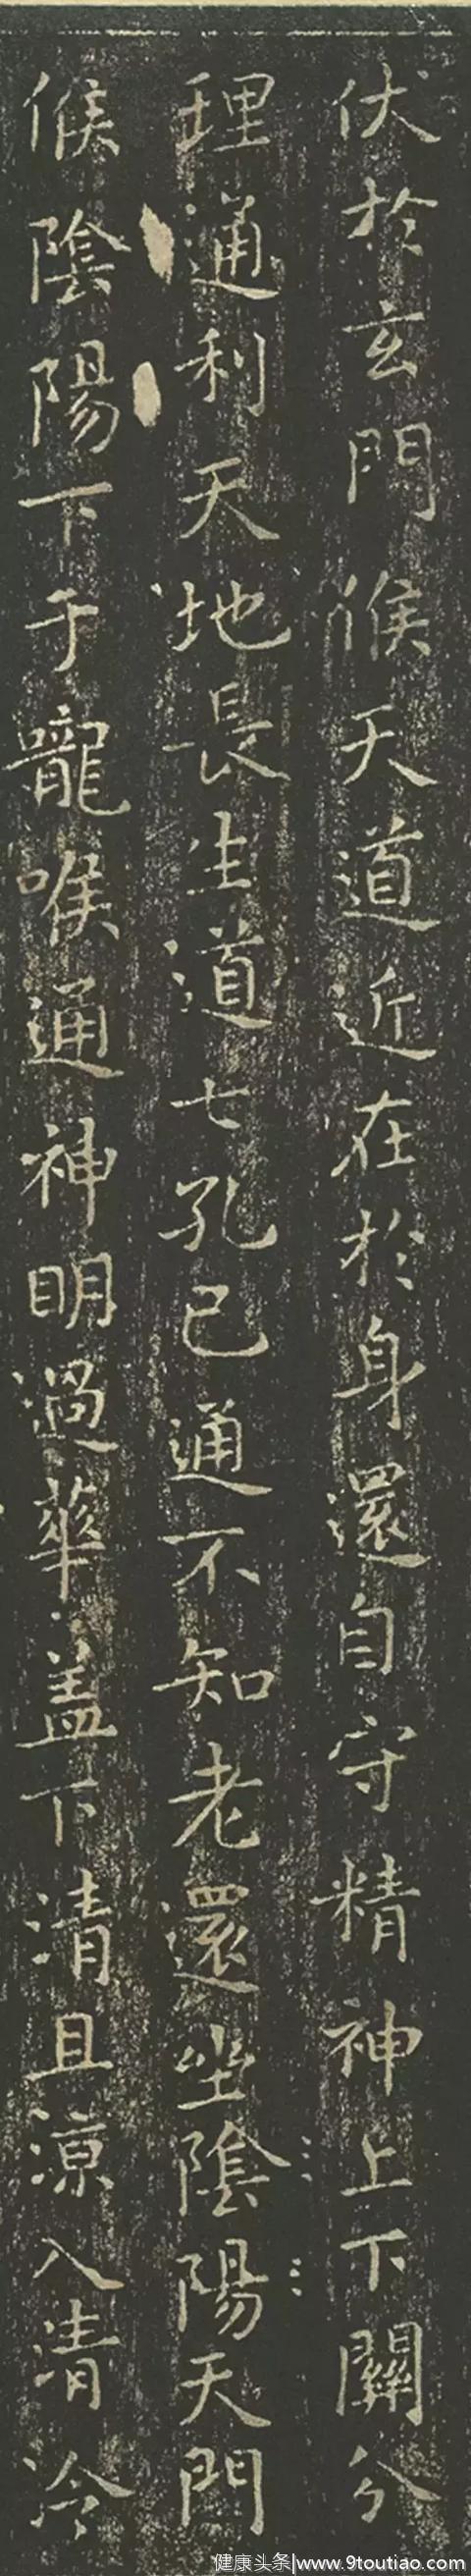 伏於玄門候天道近在於身還自守精神上下關分
理通利天地長生道七孔已通不知老還坐陰陽天門
候陰陽下于嚨喉通神明過華蓋下清且涼入清泠
健康头条|www.9toutiao.com